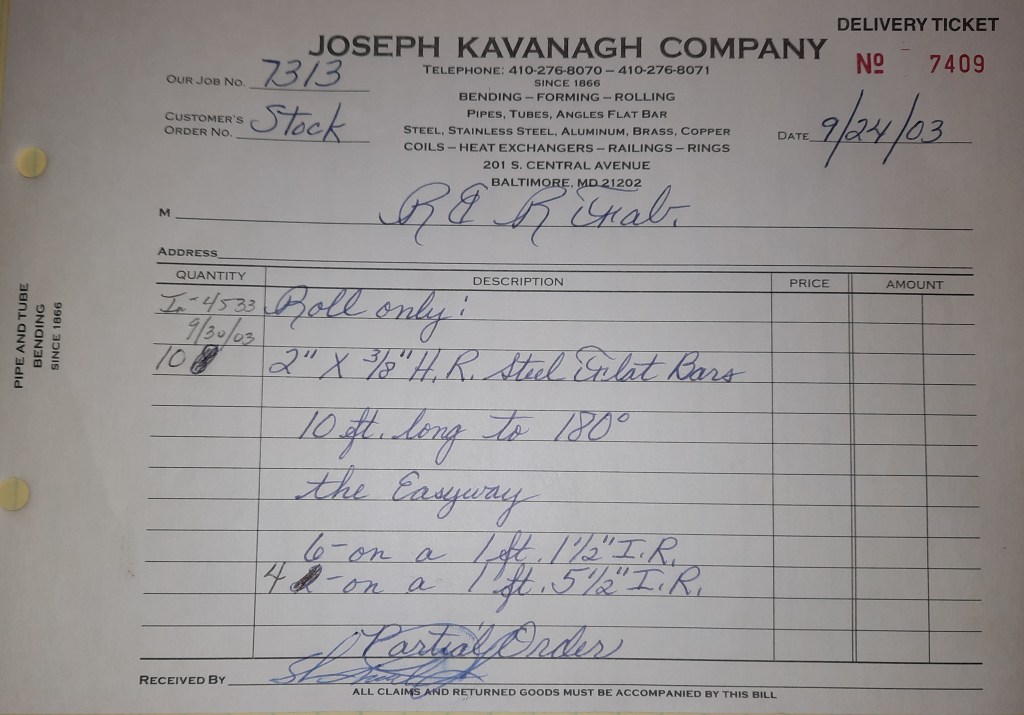 DELIVERY TICKET
JOSEPH KAVANAGH COMPANY
Nº 7409
OUR JOB NO. 7313
TELEPHONE: 410-276-8070 – 410-276-8071
SINCE 1866
BENDING – FORMING – ROLLING
PIPES, TUBES, ANGLES FLAT BAR
CUSTOMER'S ORDER NO. Stock
STEEL, STAINLESS STEEL, ALUMINUM, BRASS, COPPER
DATE 9/24/03
COILS – HEAT EXCHANGERS – RAILINGS – RINGS
201 S. CENTRAL AVENUE
BALTIMORE, MD 21202
M R E R Fab.
ADDRESS
QUANTITY DESCRIPTION PRICE AMOUNT
In-4533 Roll only:
9/30/03
10 2" X 3/8" H.R. Steel Flat Bars
10 ft. long to 180°
the Easyway
6-on a 1 ft. 1 1/2" I.R.
4 -on a 1 ft. 5 1/2" I.R.
Partial Order
RECEIVED BY
ALL CLAIMS AND RETURNED GOODS MUST BE ACCOMPANIED BY THIS BILL
PIPE AND TUBE
BENDING
SINCE 1866